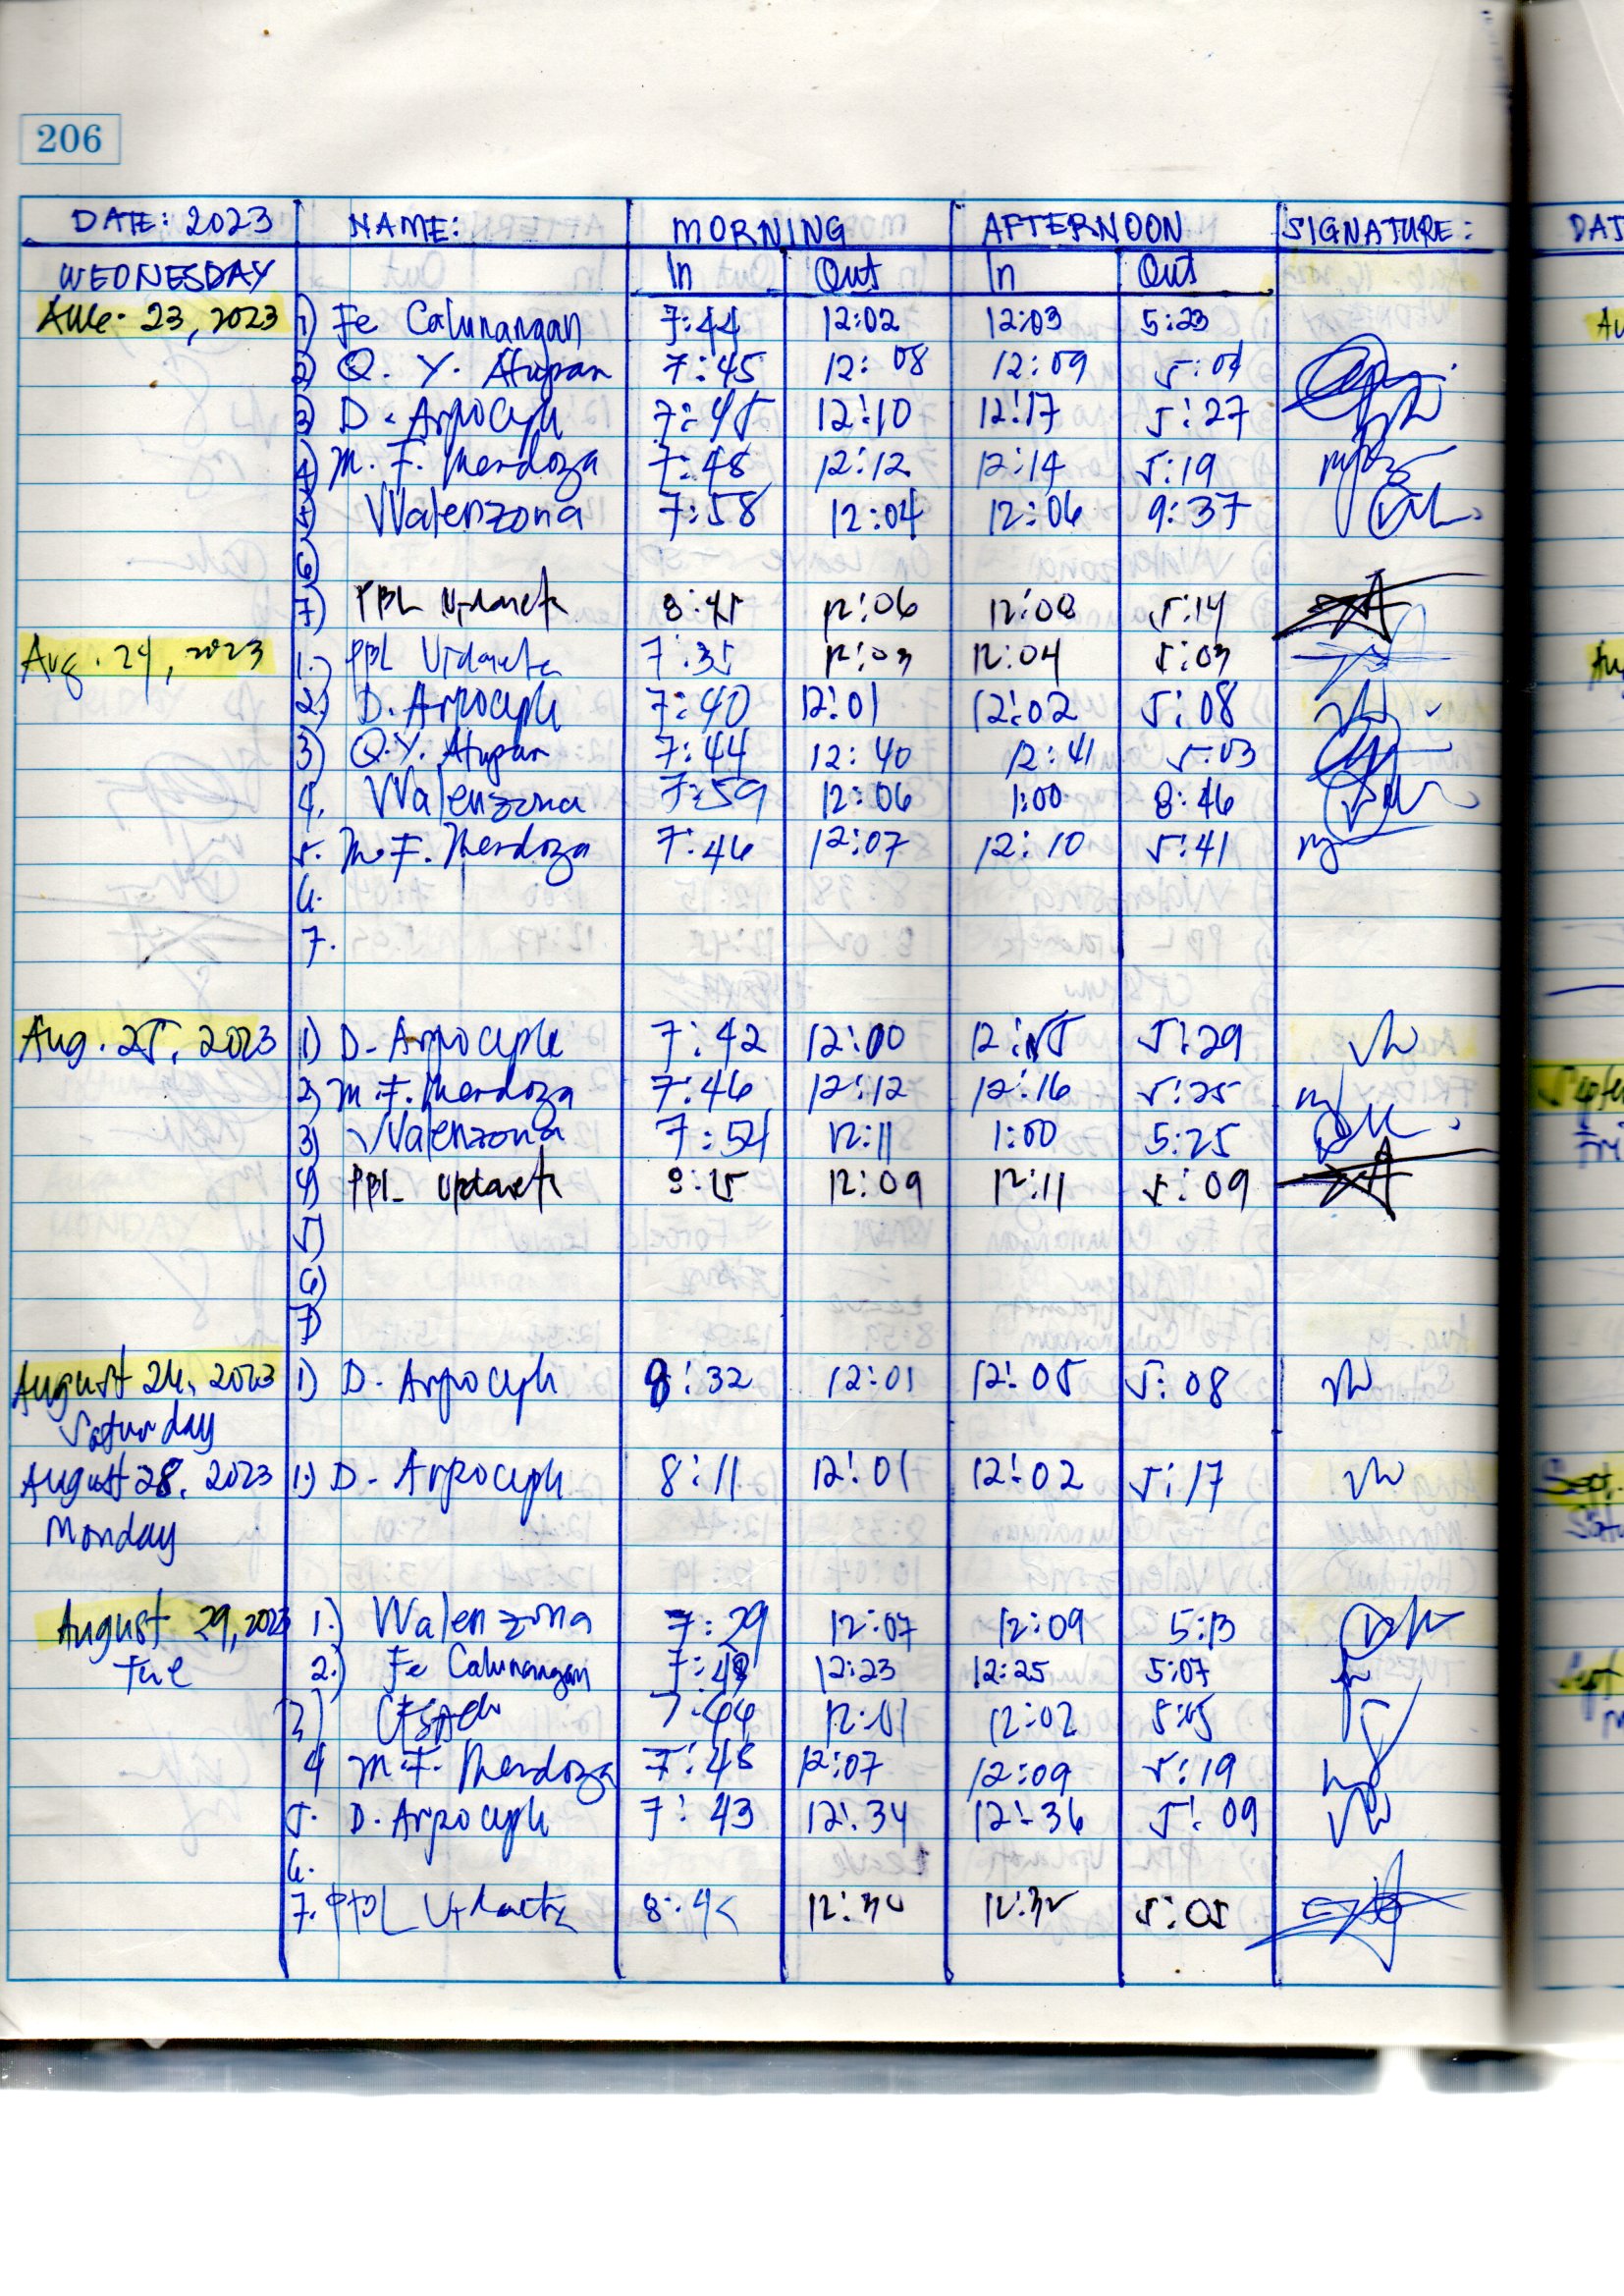 206
DATE: 2023 NAME: MORNING AFTERNOON SIGNATURE: DAT
WEDNESDAY In Out In Out
AUG. 23, 2023 1) Fe Calunangan 7:44 12:02 12:03 5:23
2) Q. Y. Atupan 7:45 12:08 12:09 5:04
3) D. 7:45 12:10 12:17 5:27
4) M. F. Mendoza 7:48 12:12 12:14 5:19
VValenzona 7:58 12:04 12:06 9:37
6)
7) PBL 8:45 12:06 12:08 5:14
Aug. 24, 2023 1.) PBL 7:35 12:03 12:04 5:03
2.) D. 7:40 12:01 12:02 5:08
3) Q.Y. Atupan 7:44 12:40 12:41 5:03
4. VValenzona 7:59 12:06 1:00 8:46
5. M.F. Mendoza 7:46 12:07 12:10 5:41
6.
7.
Aug. 25, 2023 1) D. 7:42 12:00 5:29
2) M.F. Mendoza 7:46 12:12 12:16 5:25
3) VValenzona 7:54 12:11 1:00 5:25
4) PBL 8:15 12:09 12:11 5:09
5)
6)
7)
August 26, 2023 1) D. 8:32 12:01 12:05 5:08
Saturday
August 28, 2023 1.) D. 8:11 12:01 12:02 5:17
Monday
August 29, 2023 1.) VValenzona 7:29 12:07 12:09 5:13
Tue 2.) Fe Calunangan 12:23 12:25 5:07
3) 7:44 12:01 12:02 5:05
4 M.F. Mendoza 7:48 12:07 12:09 5:19
5. D. 7:43 12:34 12:36 5:09
6.
7. PBL 12:30 12:32 5:05